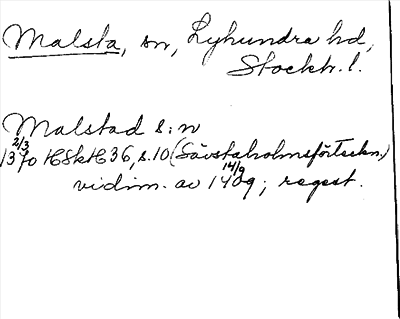 Malsta, sn, Lyhundra hd,
Stockh. l.
Malstad s:n
2/3 1370 HSkH 36, s. 10 (Sävstaholmsförteckn.)
vidim. av 14/9 1409; regest.